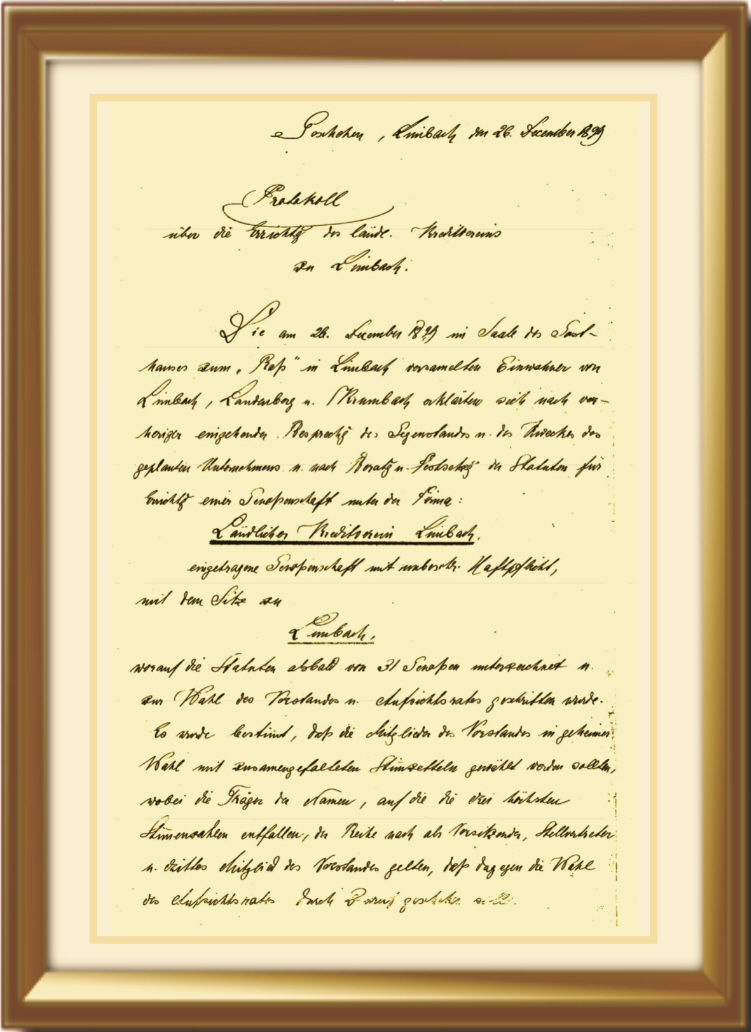 Limbach den 26. Dezember 1899
Protokoll
über die Errichtg des ländl. Kreditvereins
zu Limbach.
Die am 26. Dezember 1899 im Saale des Gast-
hauses zum „Roß" in Limbach versamelten Einwohner von
Limbach, u. Krumbach erklärten sich nach vor-
heriger eingehender Besprechg des Gegenstandes u. des Zweckes des
geplanten Unternehmens u. nach Beratg u. Festsetzg der Statuten für
Errichtg einer Genoßenschaft unter der Firma:
Ländlicher Kreditverein Limbach,
eingetragene Genoßenschaft mit unbeschr. Haftpflicht,
mit dem Sitze zu
Limbach,
worauf die Statuten alsbald von 31 Genoßen unterzeichnet u.
zur Wahl des Vorstandes u. Aufsichtsrates geschritten wurde.
Es wurde bestimt, daß die Mitglieder des Vorstandes in geheimer
Wahl mit zusamengefalteten Stimzetteln gewählt werden sollten,
wobei die Träger der Namen, auf die die drei höchsten
Stimenzahlen entfallen, der Reihe nach als Vorsitzender, Stellvertreter
u. drittes Mitglied des Vorstandes gelten, daß dagegen die Wahl
des Aufsichtsrates durch